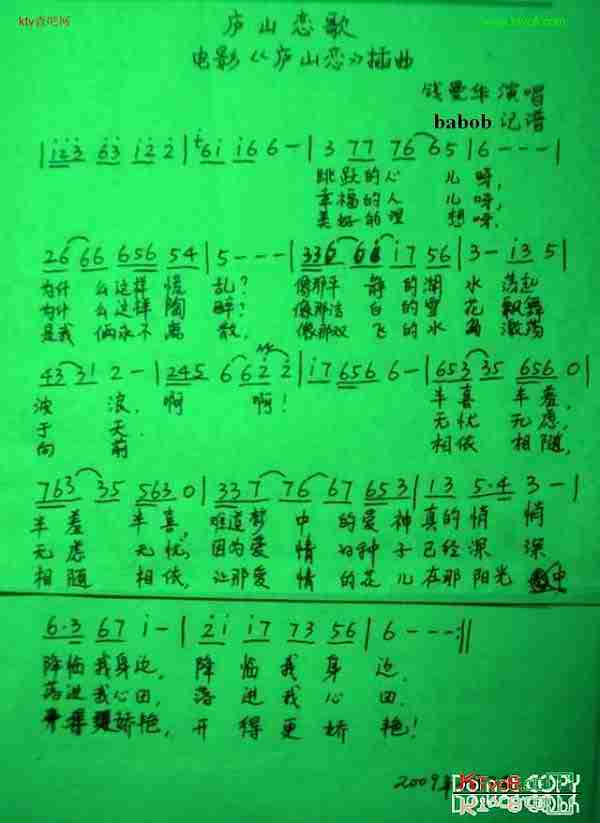 ktv喜吧网
www.ktvc8.com
庐山恋歌
电影《庐山恋》插曲
钱曼华 演唱
babob 记谱
|i̇23 63 i2 2|61 i66-|3 77 76 65|6---|
跳跃的心 儿呀,
幸福的人 儿呀,
美好的理 想呀,
26 66 656 54|5---|336 61 i7 56|3- i3 5|
为什 么这样 慌 乱? 像那平 静的湖 水 荡起
为什 么这样 陶 醉? 像那洁 白的雪 花 飘舞
是我 俩永不 离 散, 像那双 飞的水 鸟 激荡
43 31 2-|245 6 62 2|i7 656 6-|653 35 656 0|
波 浪, 啊 啊! 半喜 半羞,
于 天. 无忧 无虑,
向 前 相依 相随,
763 35 563 0|337 76 67 653|13 5·4 3-|
半羞 半喜, 难道梦 中 的爱 神真的悄 悄
无虑 无忧, 因为爱 情 的种 子已经深 深
相随 相依, 让那爱 情 的花 儿在那阳光 中
6·3 67 i-|2i i7 73 56|6---:||
降临我身边, 降 临 我 身 边.
落进我心田, 落 进 我 心 田.
开得更娇艳, 开 得 更 娇 艳!
2009年
DO NOT COPY
KTVC8